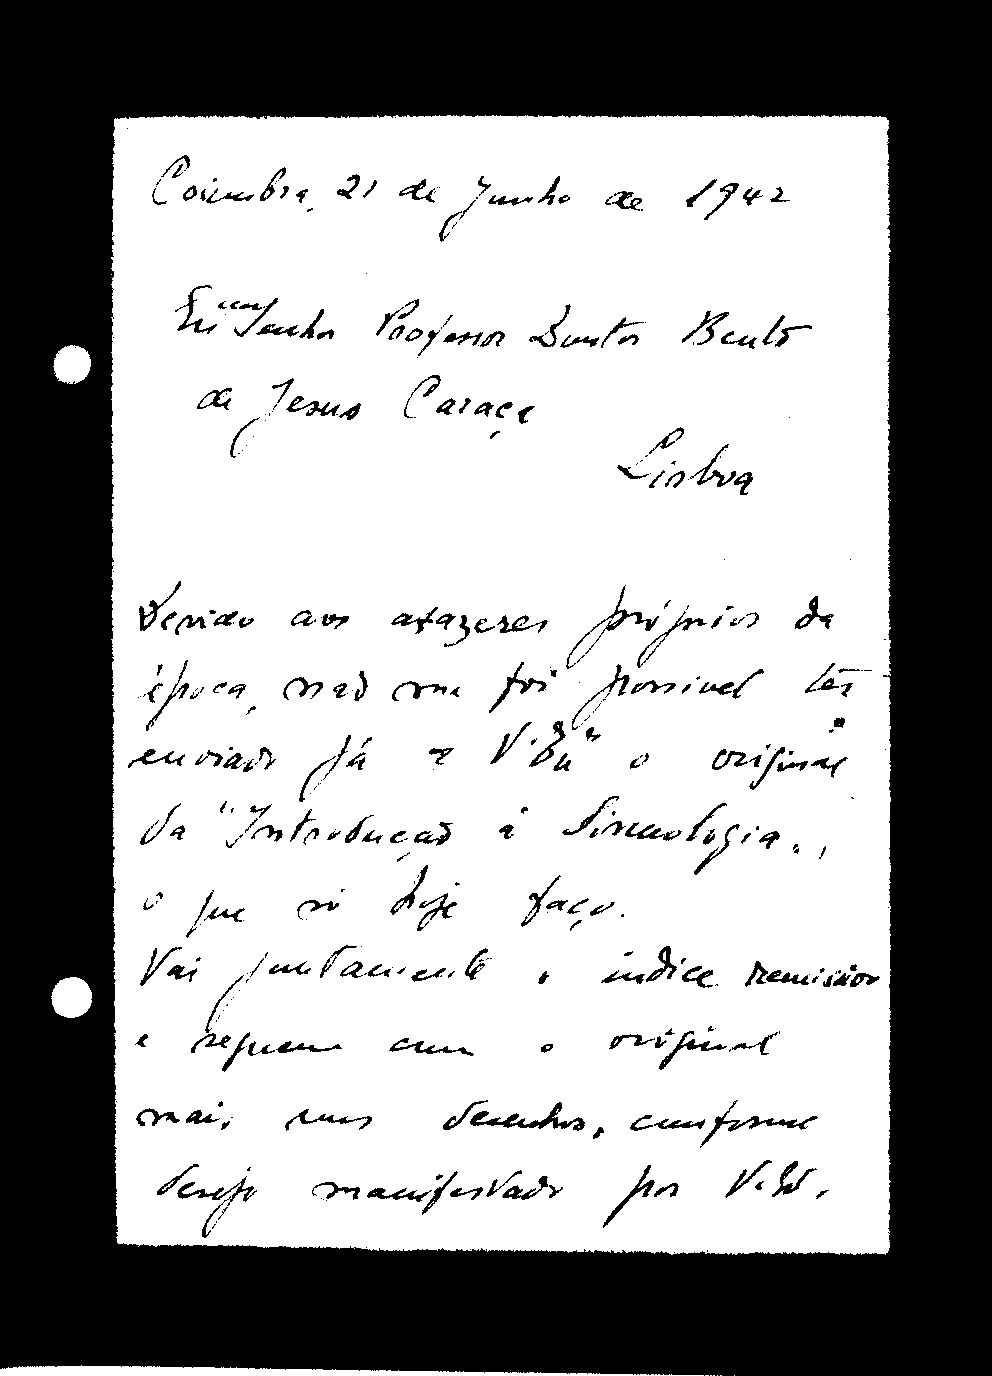 Coimbra, 21 de Junho de 1942
Exmo Senhor Professor Doutor Bento
de Jesus Caraça
Lisboa
Devido aos afazeres próprios da
época, não me foi possivel ter
enviado já a V. Exa o original
da "Introdução à Sismologia",
o que só hoje faço.
Vai juntamente o indice remissivo
e seguem com o original
mais uns desenhos, conforme
desejo manifestado por V.